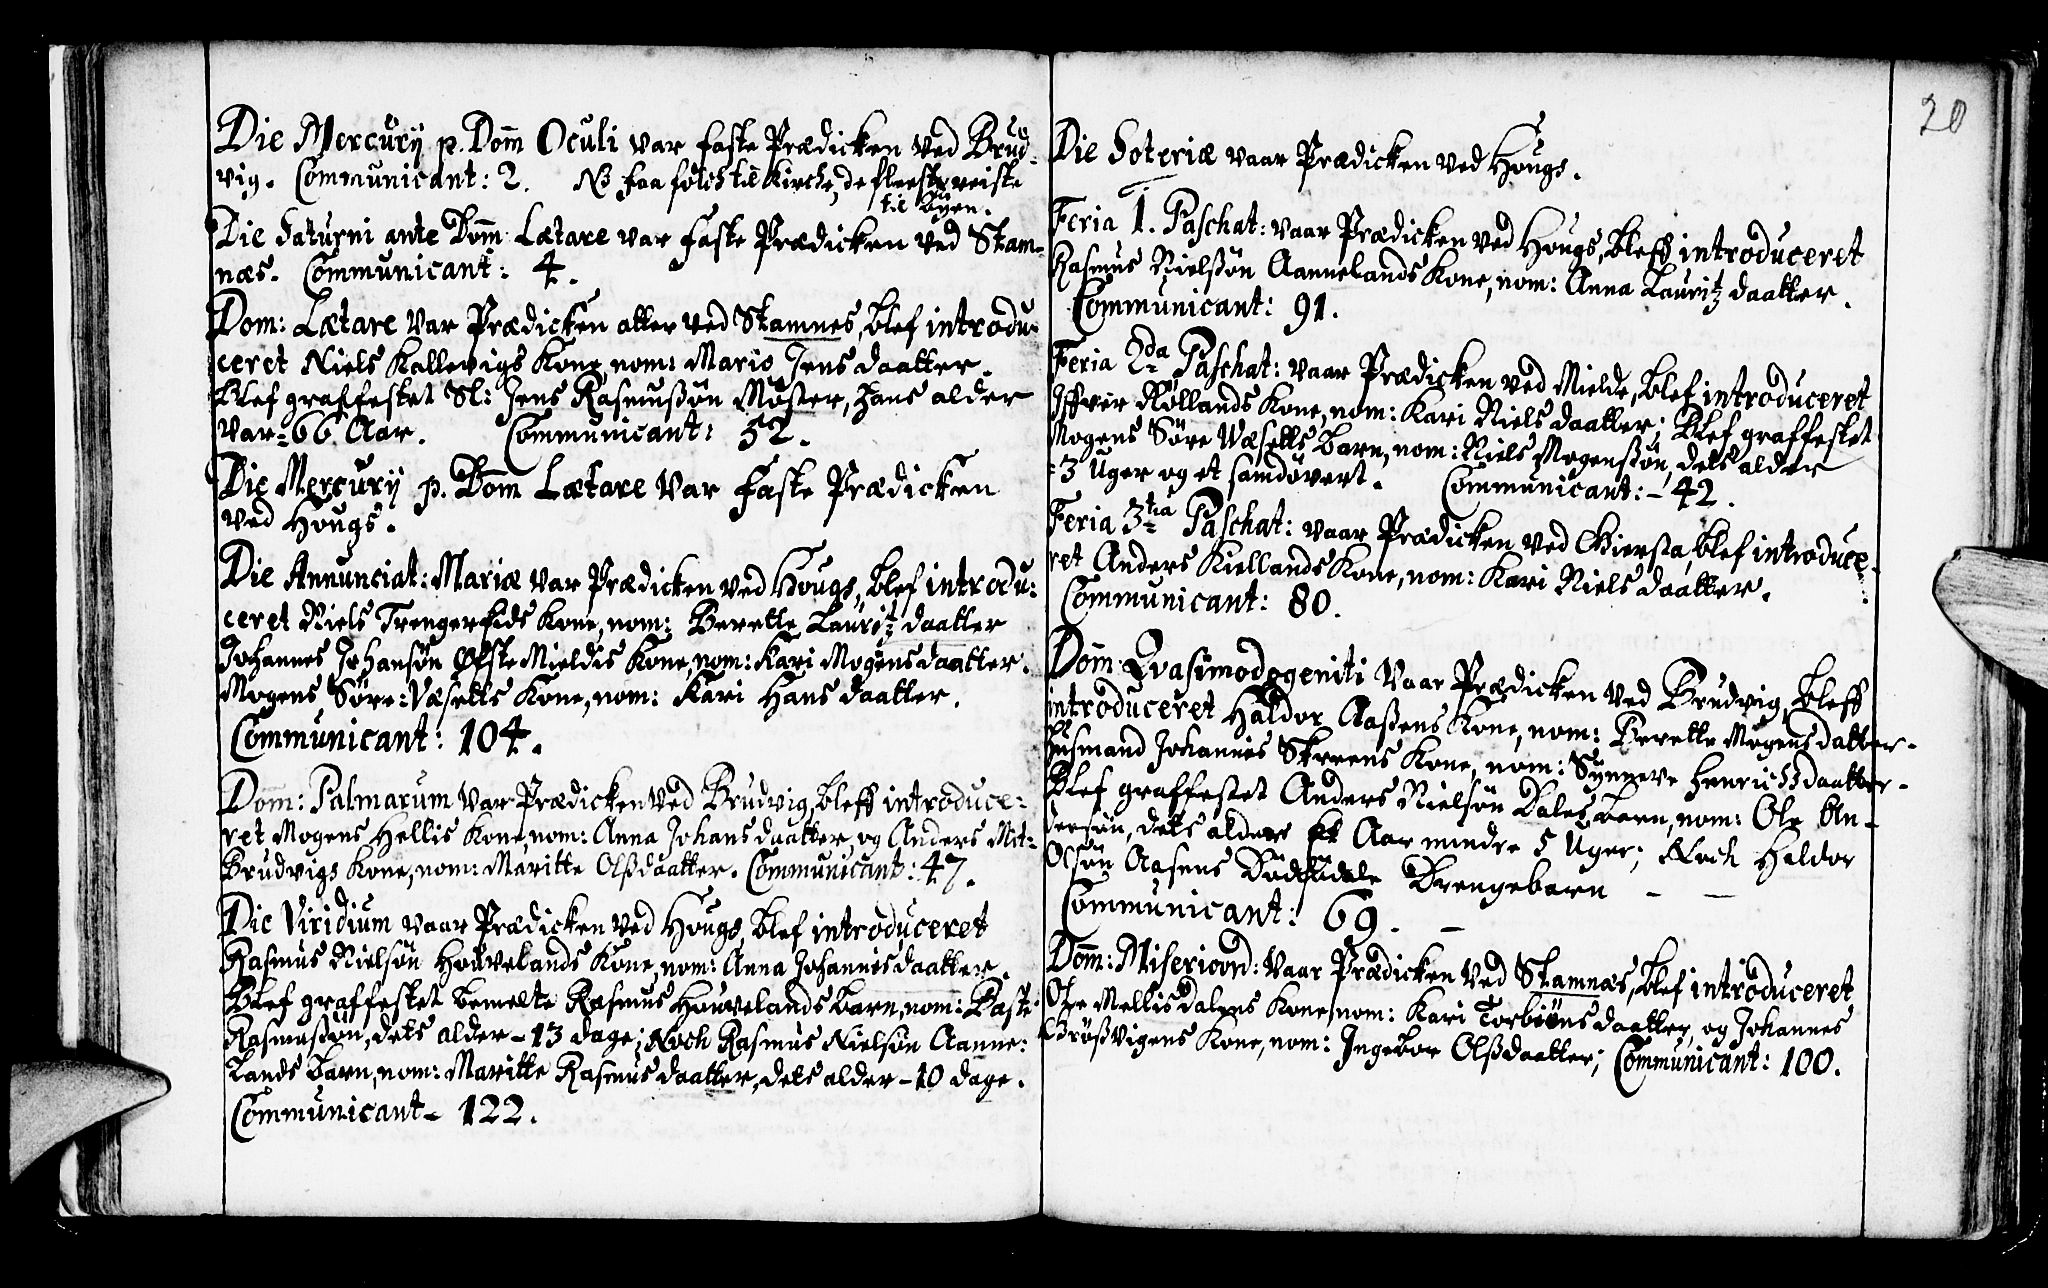 Die Mercurij p. Dom̄ Oculi var faste Prædicken ved Brud-
vig. Communicant: 2. NB faa folck til Kircke, de fleeste reiste
til Byen.
Die Saturni ante Dom̄ Lætare var faste Prædicken ved Stam-
næs. Communicant: 4.
Dom: Lætare var Prædicken atter ved Stamnes, blef introdu-
ceret Niels Kallevigs Kone, nom: Maris Jens daatter.
Blef graffestet Sl: Jens Rasmussøn Møster, hans alder
var-66 Aar. Communicant: 52.
Die Mercurij p. Dom̄ Lætare var faste Prædicken
ved Hougs.
Die Annunciat: Mariæ var Prædicken ved Hougs, blef introdu:
ceret Niels Trengereids Kone, nom: Berette Lauritz daatter
Johannes Johansøn Øfste Mieldis Kone, nom: Kari Mogens daatter.
Mogens Søre: Væsetts Kone, nom: Kari Hans daatter.
Communicant: 104.
Dom: Palmarum var Prædicken ved Brudvig, bleff introduce-
ret Mogens Hellis Kone, nom: Anna Johans daatter, og Anders Mit-
Brudvigs Kone, nom: Maritte Olßdaatter. Communicant: 47.
Die Viridium vaar Prædicken ved Hougs, blef introduceret
Rasmus Nielsøn Houvelands Kone, nom: Anna Johannesdaatter.
Blef graffestet bemelte Rasmus Houvelands barn, nom: Baste
Rasmussøn, dets alder-13 dage; Noch Rasmus Nielsøn Aanne:
lands barn, nom: Maritte Rasmusdaatter, dets alder-10 dage.
Communicant- 122.
20
Die Soteriæ vaar Prædicken ved Hougs.
Feria 1. Paschat: vaar Prædicken ved Hougs, bleff introduceret
Rasmus Nielsøn Aannelands Kone, nom: Anna Lauritz daatter.
Communicant: 91.
Feria 2da Paschat: vaar Prædicken ved Mielde, blef introduceret
Iffver Røllands Kone, nom: Kari Niels daatter; Blef graffestet
Mogens Søre Væsetts barn, nom: Niels Mogenssøn, dets alder
-3 Uger og et samdøvert. Communicant:-42.
Feria 3tia Paschat: vaar Prædicken ved Giersta, blef introduce-
ret Anders Kiellands Kone, nom: Kari Niels daatter.
Communicant: 80.
Dom: Qvasimodogeniti vaar Prædicken ved Brudvig, bleff
introduceret Haldor Aasens Kone, nom: Berette Mogens datter-
Husmand Johannes Skreens Kone, nom: Synneve Henrichs daatter-
Blef graffestet Anders Nielsøn Dales barn, nom: Ole An-
dersøn, dets alder Et Aar mindre 5 Uger; Noch Haldor
Olsøn Aasens Dødfødde Drengebarn - -
Communicant: 69. -
Dom̄: Misericord: vaar Prædicken ved Stamnæs, blef introduceret
Ole Mellisdalens Kone, nom: Kari Torbiøns daatter, og Johannes
Brößvigens Kone, nom: Ingebor Olßdaatter; Communicant: 100.